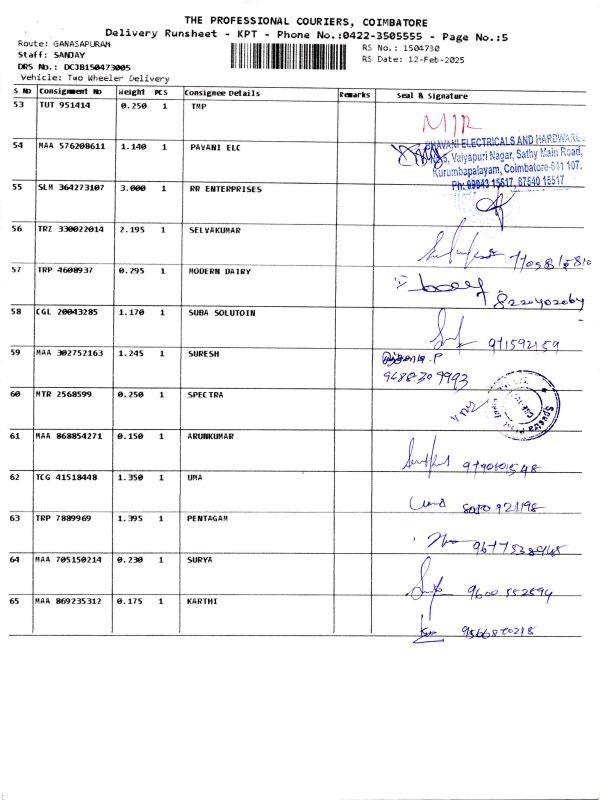 THE PROFESSIONAL COURIERS, COIMBATORE
Delivery Runsheet - KPT - Phone No.:0422-3505555 - Page No.:5
Route: GANASAPURAM
RS No.: 1504730
Staff: SANJAY
RS Date: 12-Feb-2025
DRS No.: DCJB150473005
Vehicle: Two Wheeler Delivery
S No Consignment No Weight PCS Consignee Details Remarks Seal & Signature
53 TUT 951414 0.250 1 TMP
MJR
54 MAA 576208611 1.140 1 PAVANI ELC
BHAVANI ELECTRICALS AND HARDWARE
Vaiyapuri Nagar, Sathy Main Road,
Kurumbapalayam, Coimbatore-641 107.
Ph: 99943 15617, 87540 15517
55 SLM 364273107 3.000 1 RR ENTERPRISES
56 TRZ 330022014 2.195 1 SELVAKUMAR
57 TRP 4608937 0.295 1 MODERN DAIRY
58 CGL 20043285 1.170 1 SUBA SOLUTOIN
971592159
59 MAA 302752163 1.245 1 SURESH
9688309993
60 MTR 2568599 0.250 1 SPECTRA
61 MAA 868854271 0.150 1 ARUNKUMAR
62 TCG 41518448 1.350 1 UMA
Uma
63 TRP 7889969 1.395 1 PENTAGAM
64 MAA 705150214 0.230 1 SURYA
9600552594
65 MAA 869235312 0.175 1 KARTHI